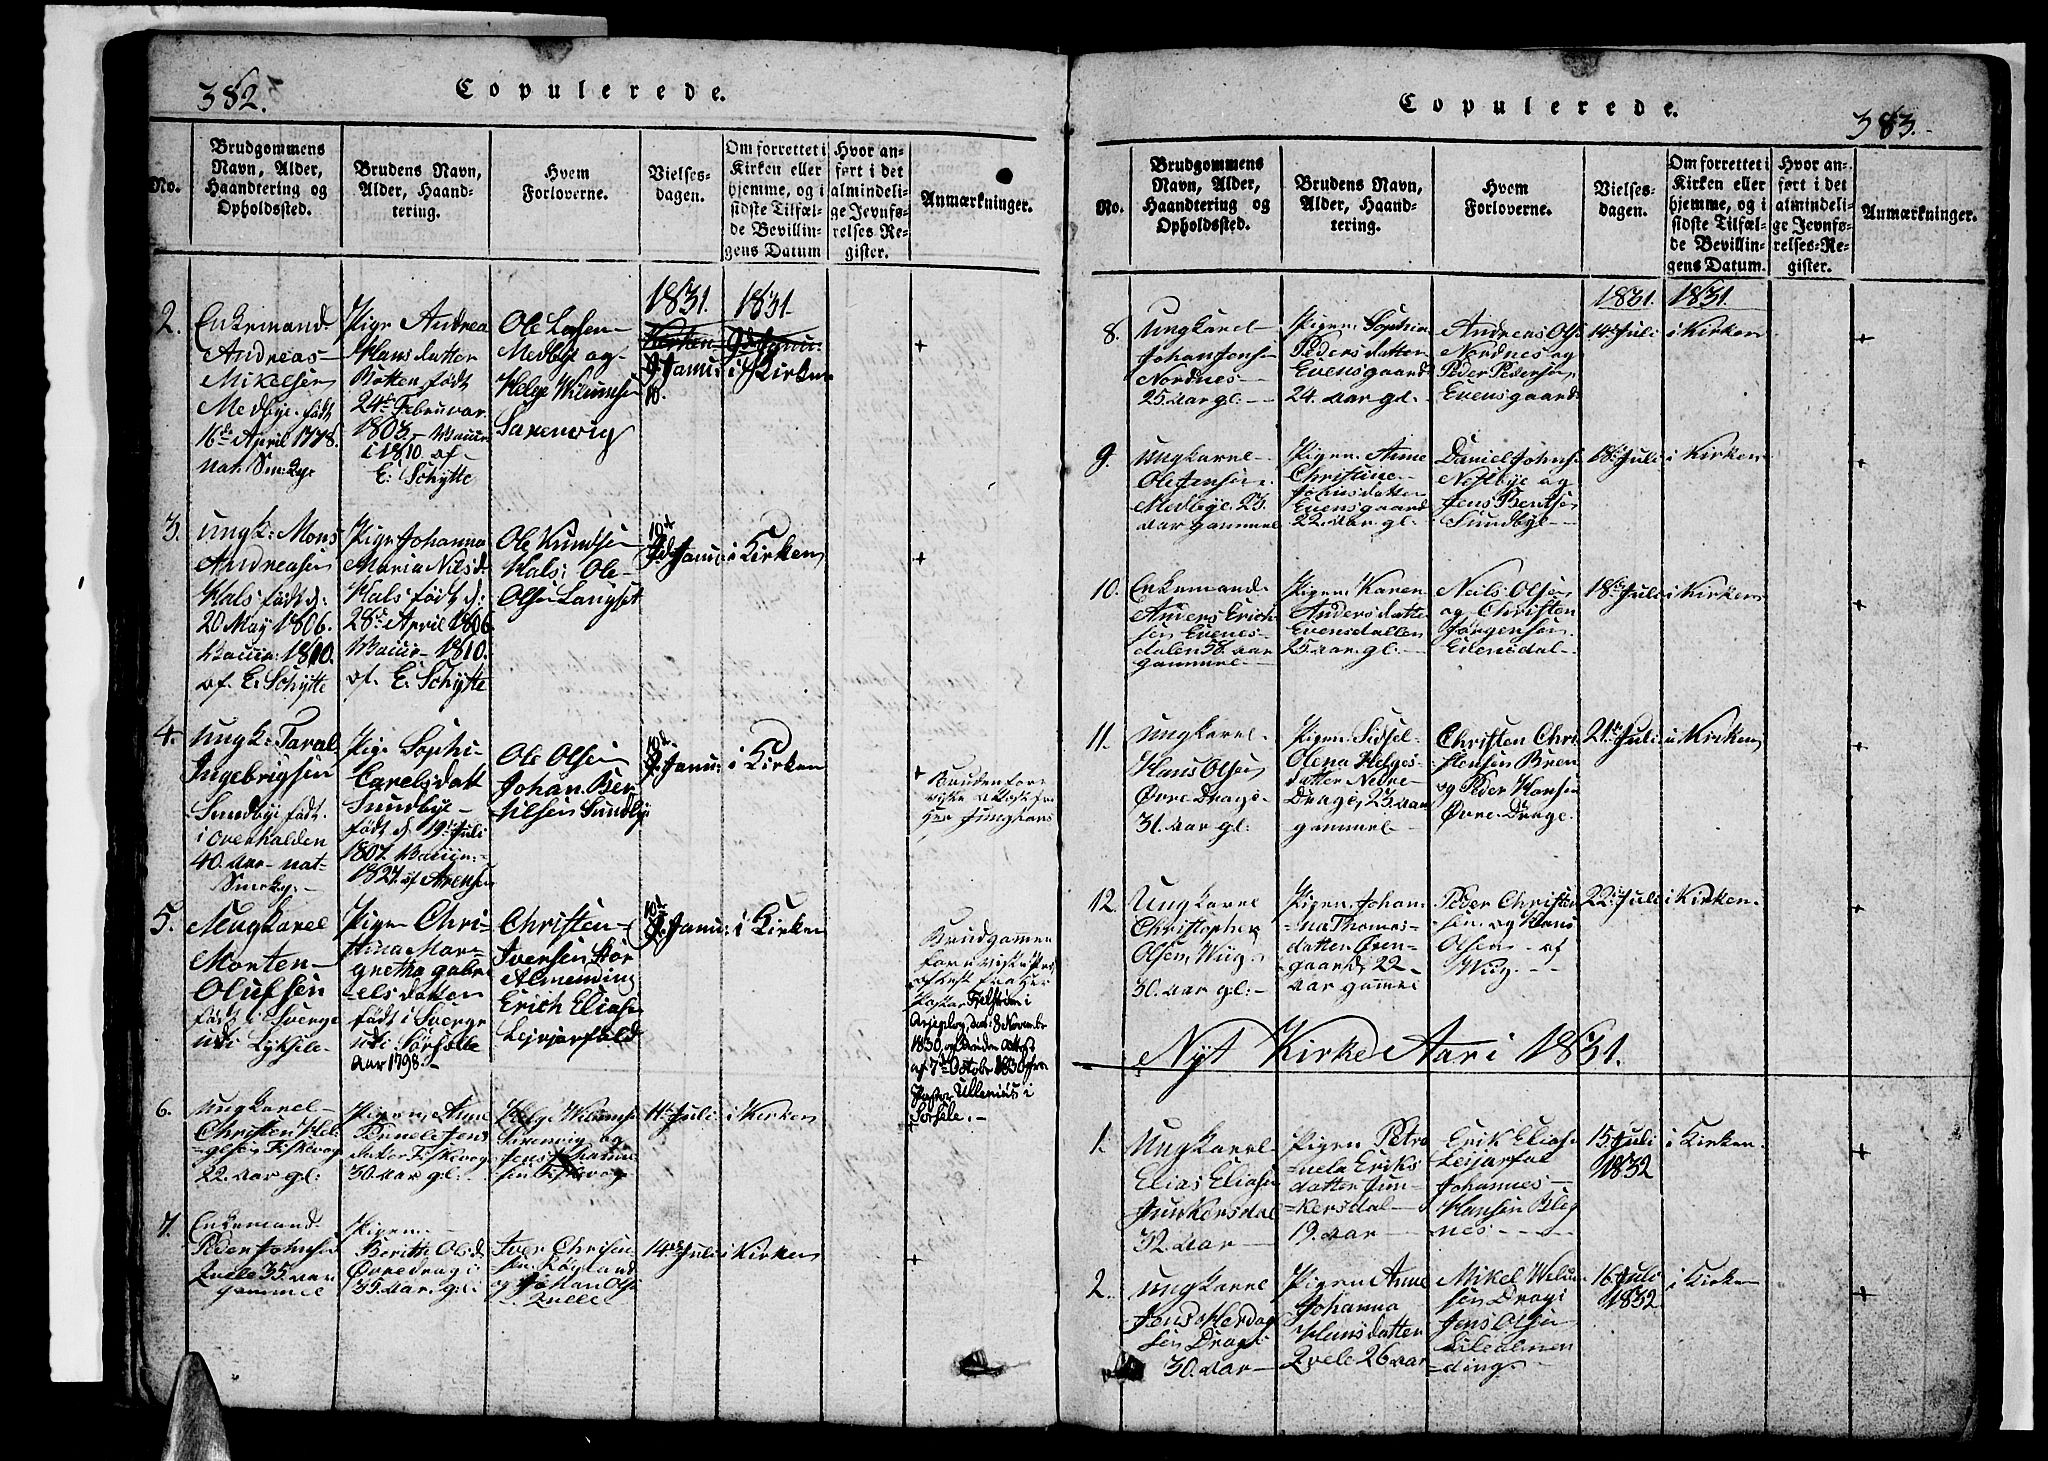 382.
Copulerede.
No.
Brudgommens
Navn, Alder,
Haandtering og
Opholdssted.
Brudens Navn,
Alder, Haand-
tering.
Hvem
Forloverne.
Vielses-
dagen.
Om forrettet i
Kirken eller
hjemme, og i
sidste Tilfæl-
de Bevillin-
gens Datum
Hvor an-
ført i det
almindeli-
ge Jevnfø-
relses-Re-
gister.
Anmærkninger.
1831. 1831.
2.
Enkemand
Andreas
Mikelsen
Medbye født
16de April 1778.
nat.
Pige Andrea
Hansdatter
Botten, født
24de Februar
1803.
i 1810. af
E. Schytte
Ole
Medbye og
Helge Wilumsen
Saxenvig
Janu:
10.
i Kirken
+
3.
Ungk: Mons
Andreasen
Hals født d:
20 May 1806.
Vaccin: 1810.
af E: Schytte
Pige Johanna
Maria Nilsd.
Hals født d:
28de April 1806
Vaccin 1810.
af E: Schytte
Ole Kundsen
Hals: Ole
Olsen Langset
Janu:
i Kirken
+
4.
Ungk: Taral
Ingebrigsen
Sundbye født
i Overhalden
40. Aar nat.
Pige Sophi
Carelsdatt
Sundbye
født d. 19de Juli
1807. Vaccin:
1827. af Arensen
Ole Olsen
Johan Ber
tilsen Sundby
Janu:
i Kirken
+
Bruden fore
viiste Attest fra
Her Junghans
5.
Ungkarel
Morten
Olufsen
født i Sverge
udi Lyksele
Pigen Chri-
stina Mar-
gretha Gabri
elsdatter
født i Sverge
udi Sorsele
Aar 1798.
Christen
Iversen Stor
Almending
Erich Eliasen
Leirjarfald
Janu:
i Kirken
Brudgommen
foreviiste
Attest fra Her
Pastor Fjelstrøm i
Arjeplog, den 8 Novembr
1830, og Bruden Attest
af 7de Octobr 1830 fra
Pastor Ullenius i
Sorsele.
6.
Ungkarel
Christen Hel-
gesen Fiskevog
22. Aar gl:
Pigen Anne
Pernele Jens
datter Fiskevog
30. Aar gl:
Helge Wilumsen
Saxenvig og
Jens Johanne-
sen Fiskevog
11te Juli
i Kirken
7.
Enkemand
Peder Johnsen
Qvele 35. Aar
gammel
Pigen
Beritte Olsd.
Øvre Dragi
35. Aar. gl:
Iver Chrisen-
sen Røgland
og Johan Olse
Qvele
14de Juli
i Kirken
+
Copulerede.
383.
No.
Brudgommens
Navn, Alder,
Haandtering og
Opholdssted.
Brudens Navn,
Alder, Haand-
tering.
Hvem
Forloverne.
Vielses-
dagen.
Om forrettet i
Kirken eller
hjemme, og i
sidste Tilfæl-
de Bevillin-
gens Datum.
Hvor an-
ført i det
almindeli-
ge Jevnfø-
relses-Re-
gister.
Anmærkninger.
1831. 1831.
8.
Ungkarel
Johan Jensen
Nordnes
25. Aar gl:
Pigen Sophia
Pedersdatter
Evensgaard
24. Aar gl:
Andreas Olsen
Nordnes og
Peder Pedersen
Evensgaard
14de Juli
i Kirken
+
9.
Ungkarel
Ole Jensen
Medbye. 23.
Aar gammel
Pigen Anne
Christine
Johnsdatter
Evensgaard
22. Aar. gl:
Daniel Johnsen
Nestbye og
Jens Bentsen
Sundbye
18de Juli
i Kirken
+
10.
Enkemand
Anders Erich-
sen Evenes-
dalen 58. Aar
gammel
Pigen Karen
Andersdatter
Evensdallen
25. Aar gl:
Neils Olsen
og Christen
Jørgensen
Evensdal
18de Juli
i Kirken
+
11.
Ungkarel
Hans Olsen
Øvre Drage
31. Aar gl:
Pigen Sidsel
Olena Helges
datter Nedre
Dragi, 23. Aar
gammel
Christen Chri
stensen Bren
og Peder Hansen
Øvre Drage.
21de Juli
i Kirken
+
12.
Ungkarel
Christopher
Olsen, Wiig
30. Aar gl:
Pigen Johan
na Thomas-
datter Øren-
gaard, 22
Aar gammel
Peder Christen
sen og Hans
Olsen af
Wiig.
22de Juli
i Kirken
+
Nyt Kirke Aar i 1831.
1.
Ungkarel
Elias Eliasen
Junkersdal
32. Aar
Pigen Petro
nela Eriks
datter Jun-
kersdal
19. Aar
Erik Eliasen
Leijarfal
Johannes
Hansen Bleg
nes
15. Juli
1832
i Kirken
+
2.
Ungkarel
Jens Herdag
sen Dragi
30. Aar
Pigen Anne
Johanna
Hansdatter
Qvele 26 Aar
Mikel Wilum
sen Dragi
Jens Olsen
Lilealmen
ding
16. Juli
1832
i Kirken
+